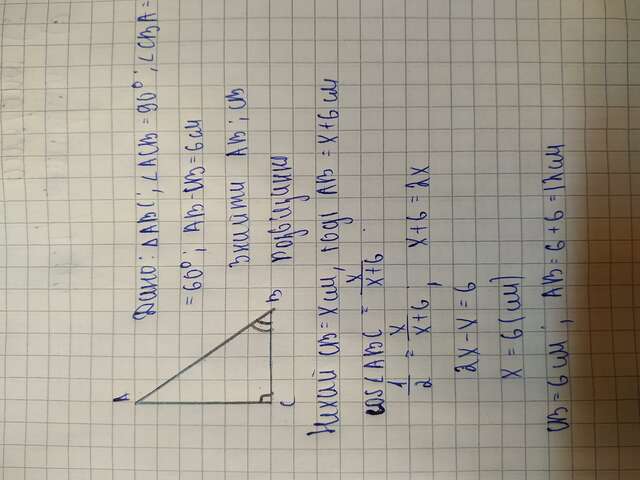 Дано: △ABC; ∠ACB = 90°; ∠CBA =
= 60°; AB-CB = 6 см
Знайти AB; CB
A
B
C
Нехай CB = x см, тоді AB = x+6 см
cos∠ABC = x/x+6
1/2 = x/x+6; x+6 = 2x
2x-x = 6
x = 6 (см)
CB = 6 см; AB = 6+6 = 12 см